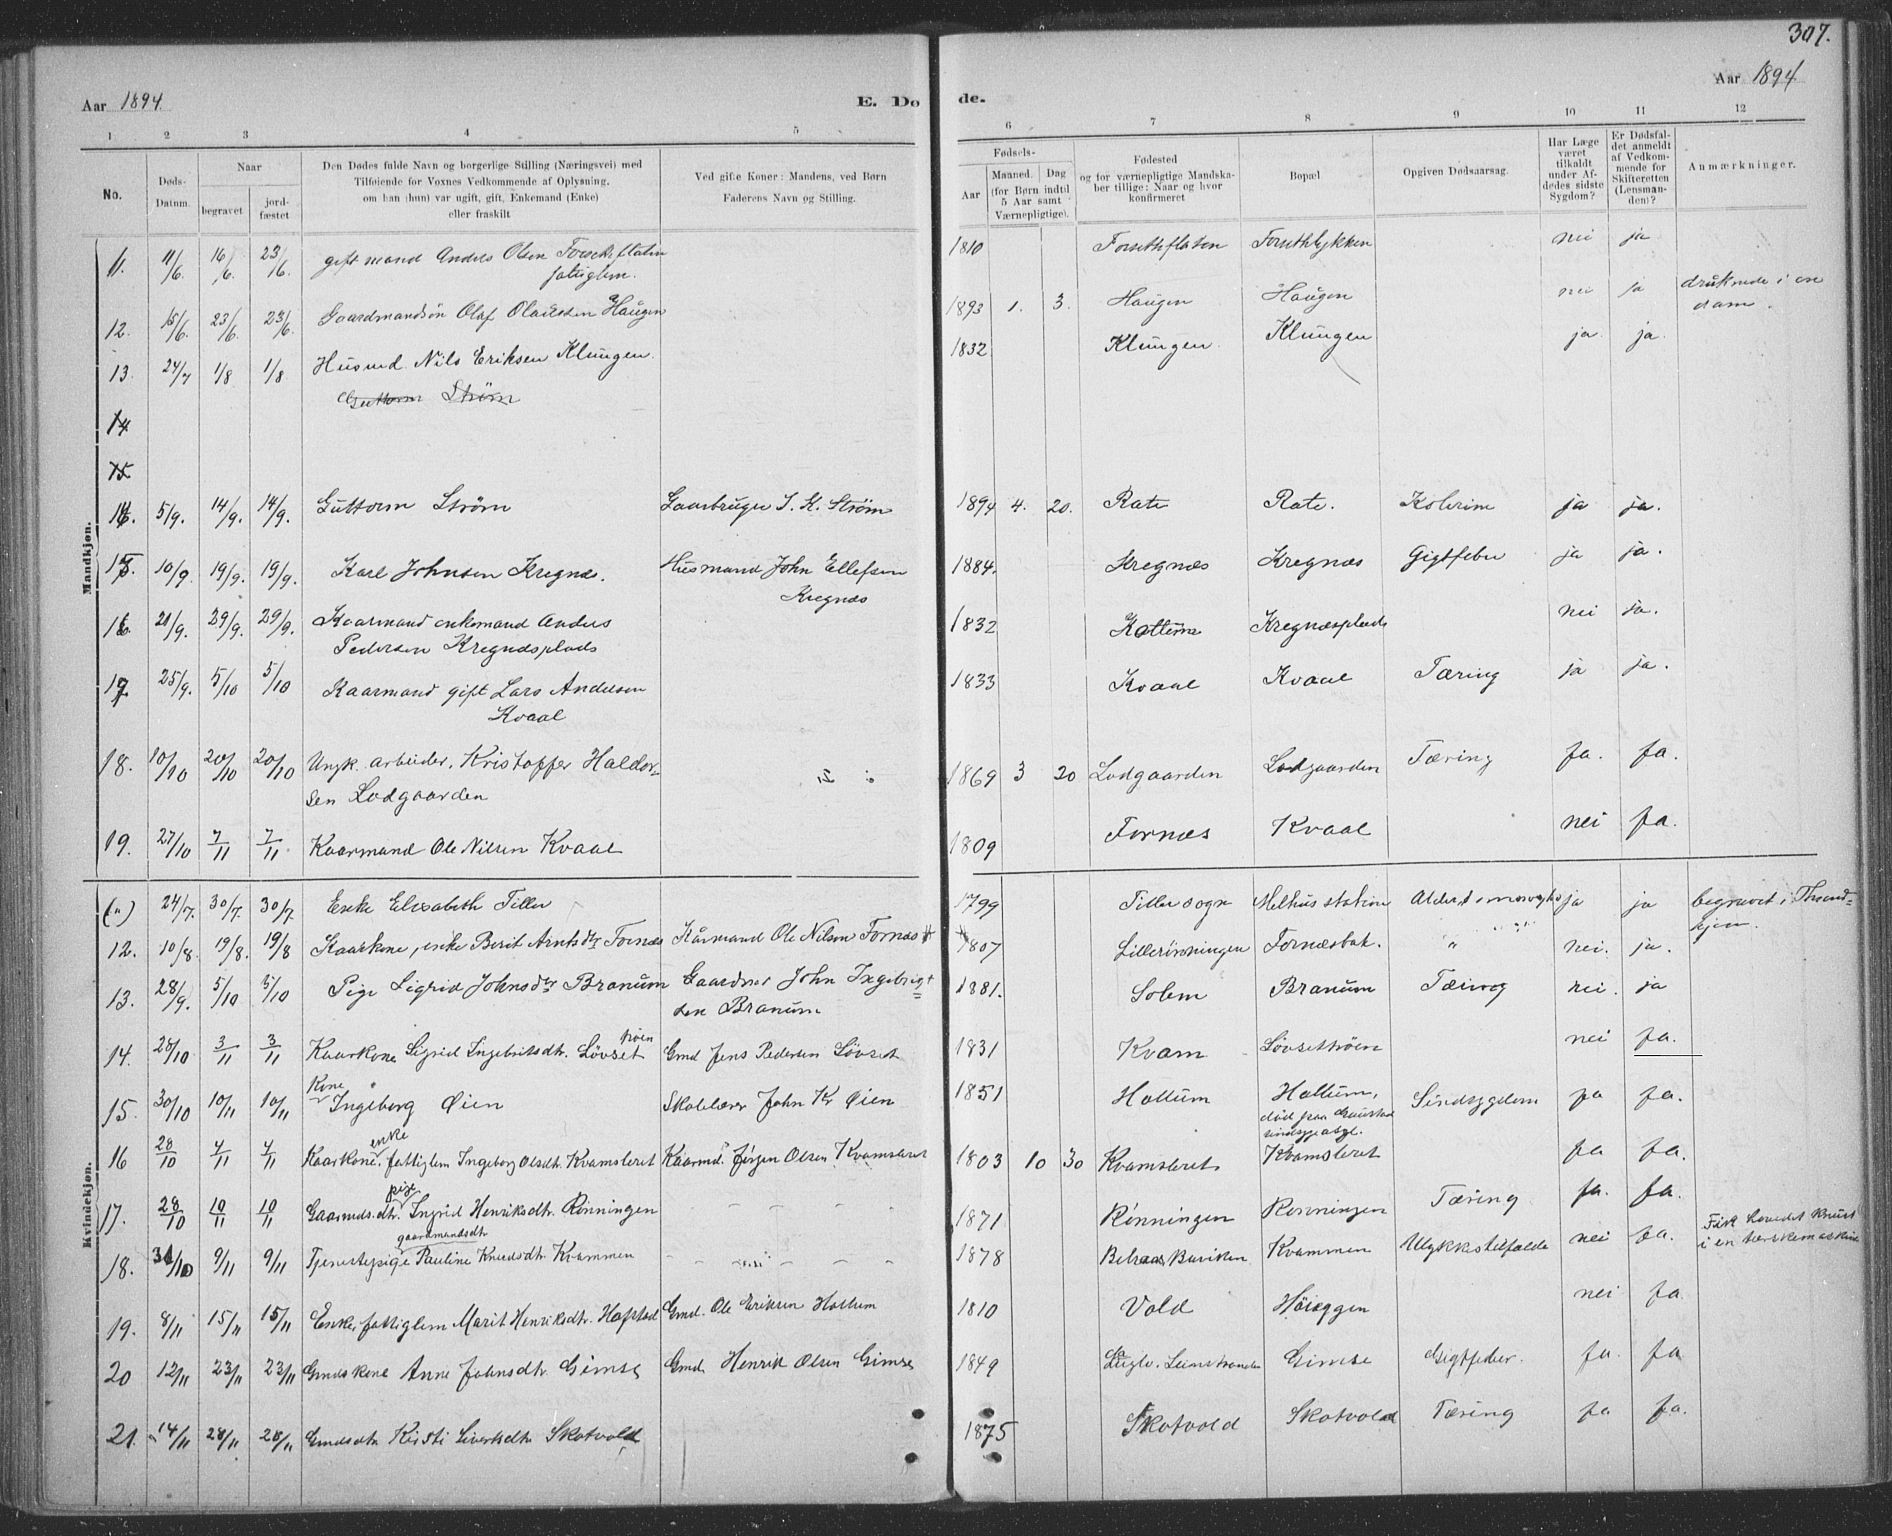 307.
Aar 1894.
E. Dø
de.
Aar 1894
1 2 3 4 5
6 7 8 9 10 11 12
No.
Døds-Datum.
Naar
begravet
jordfæstet
Den Dødes fulde Navn og borgerlige Stilling (Næringsvei) med
Tilføiende for Voxnes Vedkommende af Oplysning,
om han (hun) var ugift, gift, Enkemand (Enke)
eller fraskilt
Ved gifte Koner: Mandens, ved Børn
Faderens Navn og Stilling.
Fødsels-
Aar
Maaned.
Dag
(for Børn indtil
5 Aar samt
Værnepligtige).
Fødested
og for værnepligtige Mandska-
ber tillige: Naar og hvor
konfirmeret
Bopæl
Opgiven Dødsaarsag.
Har Læge
været
tilkaldt
under Af-
dødes sidste
Sygdom?
Er Dødsfal-
det anmeldt
af Vedkom-
mende for
Skifteretten
(Lensman-
den)?
Anmærkninger.
Mandkjøn.
11. 11/6 16/6 23/6 gift mand Anders Olsen 1810 Forsethflaten Forsethlykken nei ja
fatiglem.
12. 15/6 23/6 23/6 Gaardmandsøn Olaf Olausen Haugen 1893 1. 3. Haugen Haugen nei ja druknede i en
dam.
13. 24/7 1/8 1/8 Husmd Nils Eriksen Klungen 1832 Klungen. Klungen ja. ja.
Guttorm Strøm
14
15
14. 5/9. 14/9. 14/9. Guttorm Strøm Gaardbruger I. K. Strøm 1894 4. 20. Rate Rate. Kolerine ja ja.
15. 10/9. 19/9. 19/9. Karl Johnsen Kregnæs. Husmand John Ellefsen 1884. Kregnæs Kregnæs Gigtfeber ja ja.
Kregnæs
16. 21/9. 29/9. 29/9. Kaarmand enkemand Anders 1832 Kattem Kregnæsplads nei ja.
Pedersen Kregnæsplads
17. 25/9. 5/10 5/10 Kaarmand gift Lars Andersen 1833 Kvaal Kvaal Tæring ja ja.
Kvaal
18. 10/10 20/10 20/10 Ungk. arbeider. Kristoffer Haldor- 1869 3 20 Lodgaarden Lodgaarden Tæring ja. ja.
sen Lodgaarden
19. 27/10 7/11 7/11 Kaarmand Ole Nilsen Kvaal 1809 Fornæs Kvaal nei ja.
Kvindekjøn.
(11) 24/7. 30/7. 30/7. Enke Elisabeth Tiller 1799 Tiller sogn Melhus station ja ja begravet i Thrond-
hjem.
12. 10/8. 19/8. 19/8 Kaarkone, enke Berit Arntsdtr Fornæs Kårmand Ole Nilsen Fornæs 1807 Lillerønningen Fornæsbak. " nei. ja.
13. 28/9. 5/10 5/10 Pige Sigrid Johnsdtr Branum Gaardmd John Ingebrigt= 1881. Solem Branum Tæring nei. ja
sen Branum
14. 28/10 3/11 3/11 Kaarkone Sigrid Ingebritsdtr. Løvset trøen Gmd Jens Pedersen Løvset 1831 Kvam Løvsettrøen nei ja.
15. 30/10 10/11 10/11 Kone Ingeborg Øien Skolelærer John Kr Øien 1851 Hollum Hollum, Sindssygdom ja ja.
død paa Gaustad
sindssygeasyl.
16 28/10 4/11 4/11 Kaarkone. enke fattiglem Ingeborg Olsdtr. Kvamsleret Kaarmd. Jørgen Olsen Kvamsleret 1803 10 30 Kvamsleret Kvamsleret ja ja.
17. 28/10 10/11 10/11 Gaarmds.dtr. pige Ingrid Henriksdtr. Rønningen 1871 Rønningen Rønningen Tæring ja. ja.
18. 31/10 9/11 9/11 Tjenestepige gaardmandsdtr Pauline Knudsdtr Kvammen 1878 Kvammen Ulykkestilfælde nei ja. Fik hovedet knust
i en tærskemaskine
19. 8/11 15/11 15/11 Enke, fattiglem Marit Henriksdtr. Hofstad Gmd. Ole Eriksen Hollum 1810 Vold Høieggen nei ja.
20 12/11 23/11 23/11 Gmdskone Anne Johnsdtr. Gimse Gmd. Henrik Olsen Gimse 1849 Leinstranden Gimse Gigtfeber. ja. ja
21. 14/11 28/11 28/11 Gmdsdtr Kirsti Sivertsdtr Skotvold 1875 Skotvold Skotvold Tæring ja ja.